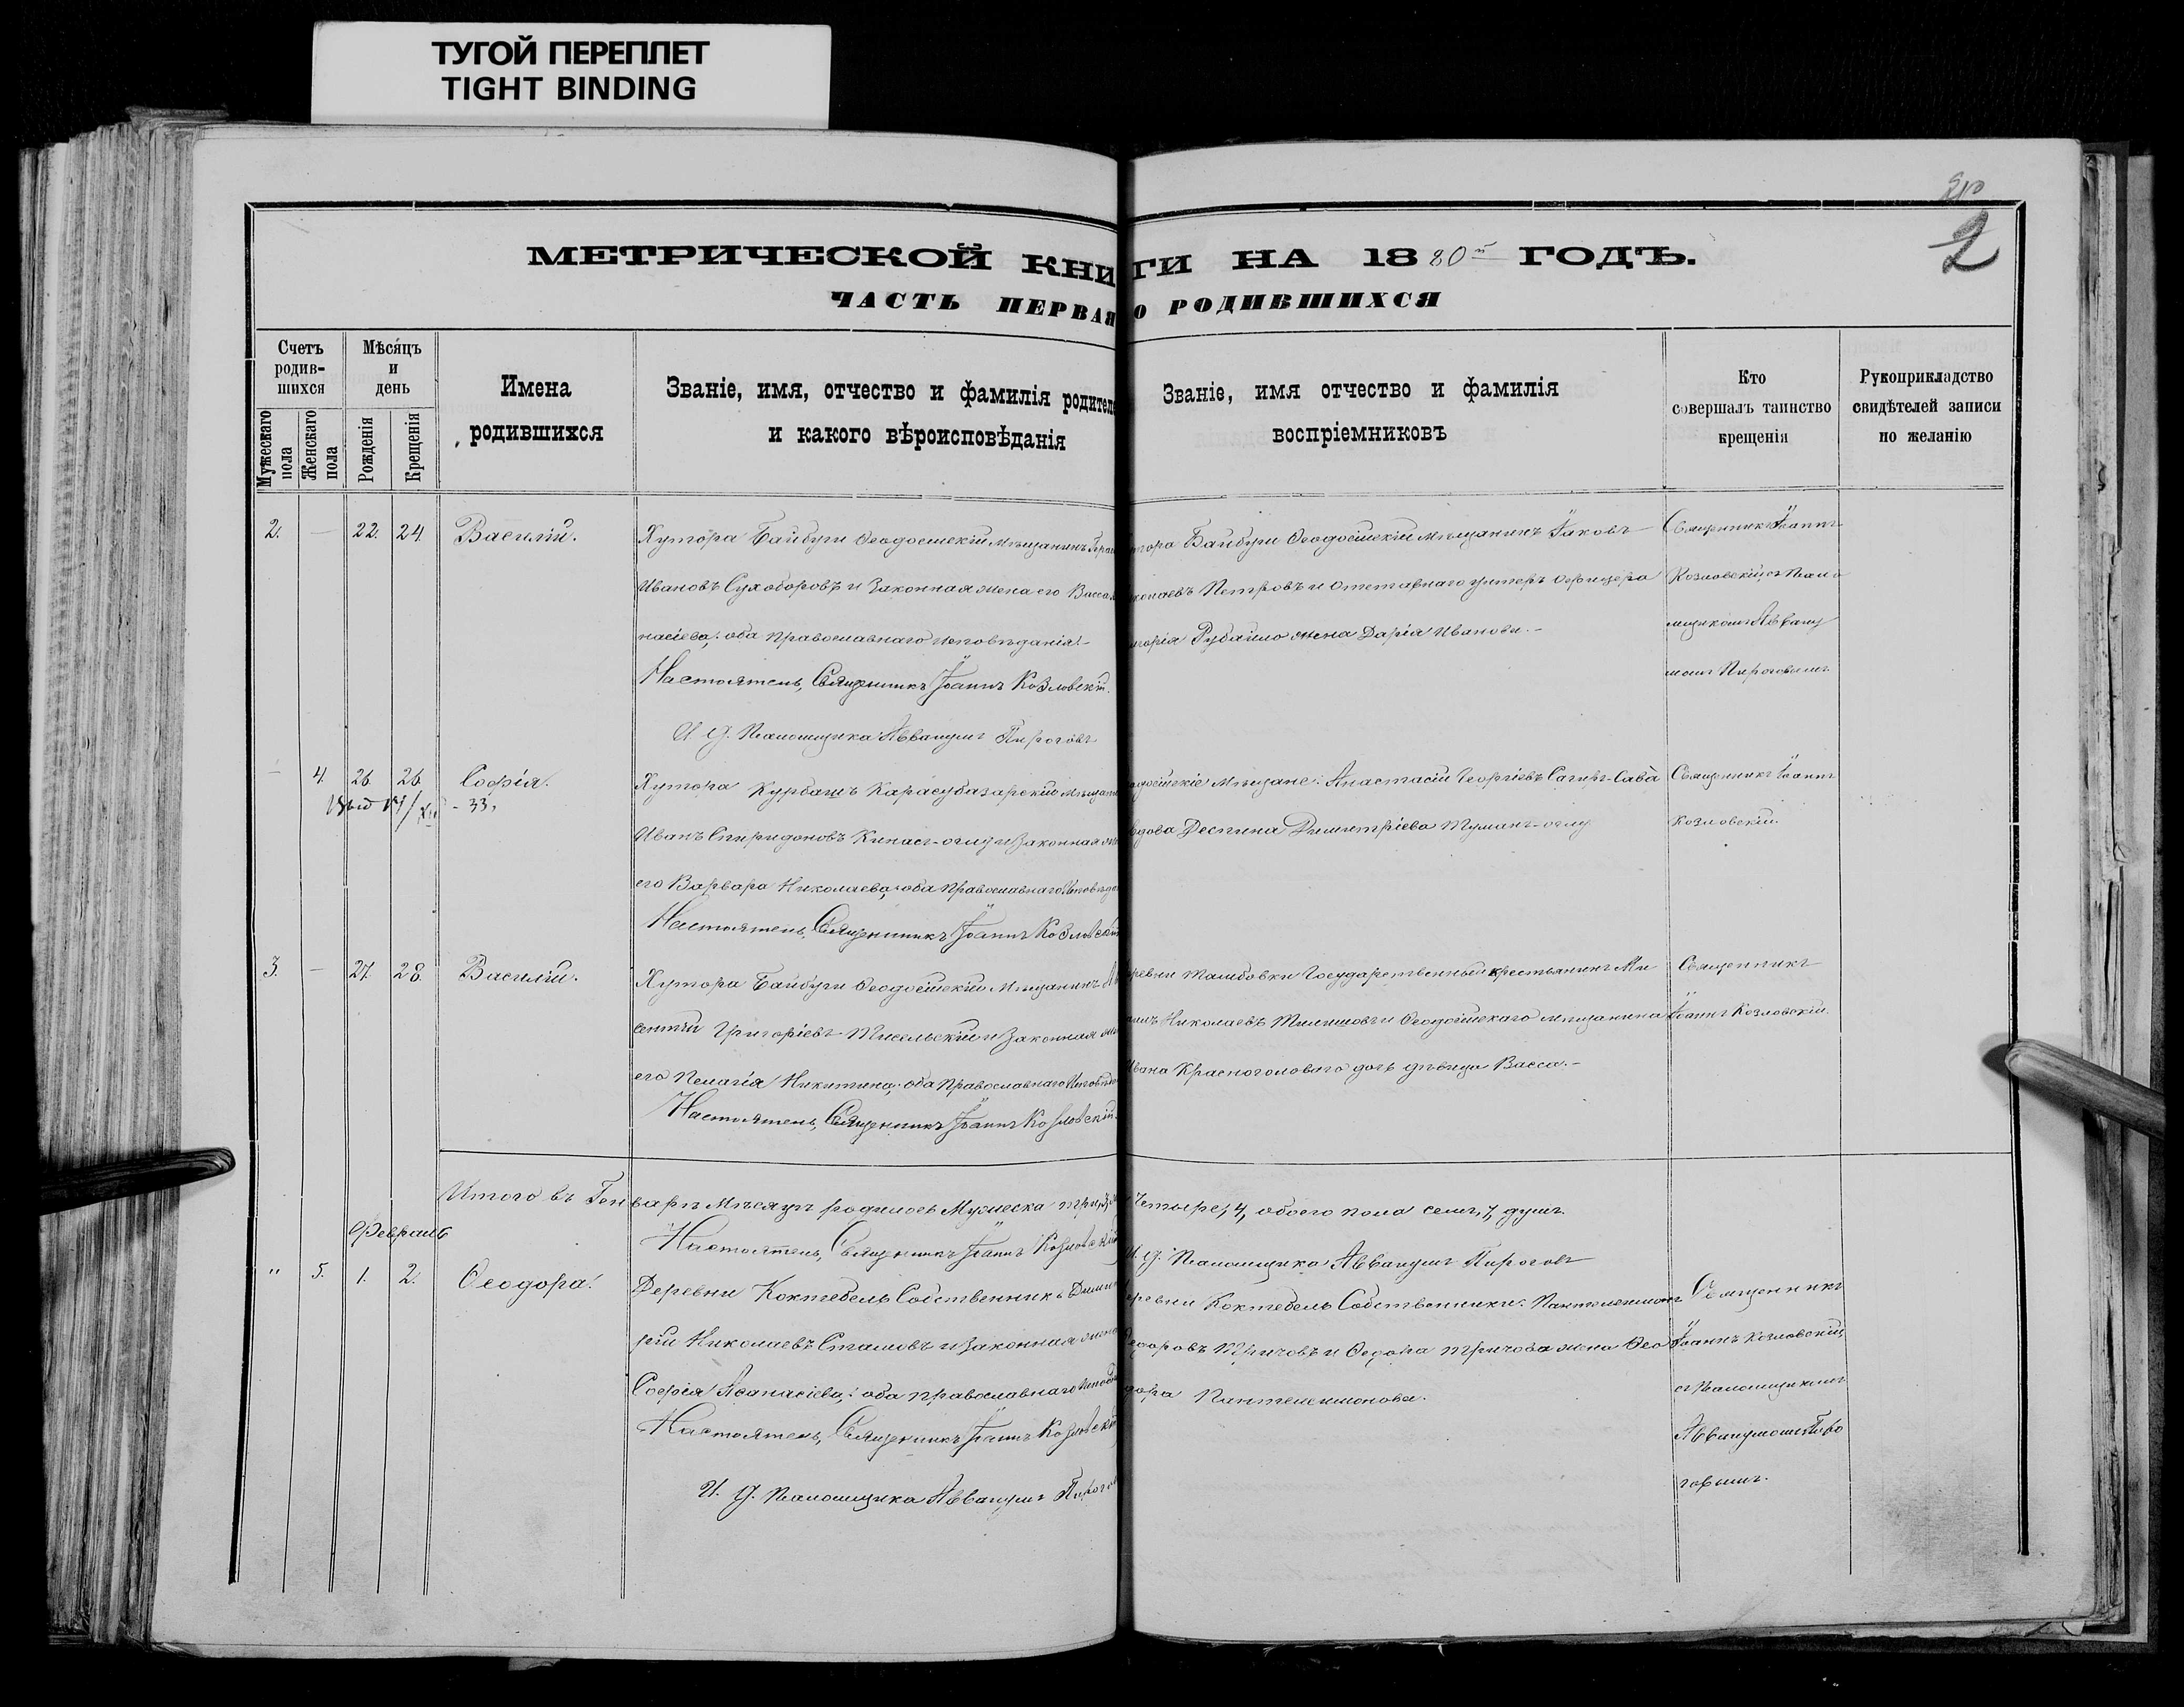 ТУГОЙ ПЕРЕПЛЕТ
TIGHT BINDING
2
МЕТРИЧЕСКОЙ КНИГИ НА 1880й ГОДЪ.
ЧАСТЬ ПЕРВАЯ О РОДИВШИХСЯ
Счетъ родив-шихся
Мужескаго пола
Женскаго пола
Мѣсяцъ и день
Рожденія
Крещенія
Имена родившихся
Званіе, имя, отчество и фамилія родител
и какого вѣроисповѣданія
Званіе, имя отчество и фамилія
воспріемниковъ
Кто
совершалъ таинство
крещенія
Рукоприкладство
свидѣтелей записи
по желанію
2. — 22. 24. Василій.
Хутора Байбуги Ѳеодосійскій мѣщанинъ
Ивановъ Сухоборовъ и законная жена его Васса
насіева; оба православнаго исповѣданія.
Настоятель, Священникъ Іоаннъ Козловскій.
И д. Псаломщика Аввакумъ Пироговъ
тора Байбуги Ѳеодосійскій мѣщанинъ Іаковъ
колаевъ Петровъ и отставнаго унтеръ офицера
горія Рубайло жена Дарія Иванова.-
Священникъ Іоаннъ
Козловскій съ Псало
мщикомъ Авваку
момъ Пироговымъ
— 4. 26. 26. Софія.
33.
Хутора Курбашъ Карасубазарскій мѣщани
Иванъ Спиридоновъ Кинасъ-оглу и законная же
его Варвара Николаева; оба православнаго исповѣда
Настоятель, Священникъ Іоаннъ Козловскій
одосійскіе мѣщане: Анастасій Георгіевъ Сагиръ-Сава
вдова Деспина Димитріева Туманъ-оглу
Священникъ Іоаннъ
Козловскій.
3. — 27. 28. Василій.
Хутора Байбуги Ѳеодосійскій мѣщанинъ
сентій Григоріевъ Мисельскій и законная же
его Пелагія Никитина; оба православнаго исповѣда
Настоятель, Священникъ Іоаннъ Козловскій.
ревни Тамбовки Государственный крестьянинъ Ми
аилъ Николаевъ и Ѳеодосійскаго мѣщанина
Ивана Красноголоваго дочь дѣвица Васса.-
Священникъ
Іоаннъ Козловскій.
Итого въ Генварѣ мѣсяцѣ родилось Мужеска три, 3, четыре, 4, обоего пола семь, 7, душъ.
Настоятель, Священникъ Іоаннъ Козловскій
И. д. Псаломщика Аввакумъ Пироговъ
Февраль
" 5. 1. 2. Ѳеодора.
Деревни Коктебель Собственникъ Димит
рій Николаевъ Стамовъ и законная жена
Софія Аѳанасіева; оба православнаго исповѣ
Настоятель, Священникъ Іоаннъ Козловскій
И. д. Псаломщика Аввакумъ Пирогов
еревни Коктебель Собственники: Пантелеимонъ
едоровъ Тричовъ и Ѳедора Тричова жена Ѳео
дора Пантелеимонова.
Священникъ
Іоаннъ Козловскій,
съ Псаломщикомъ
Аввакумомъ Пиро
говымъ.